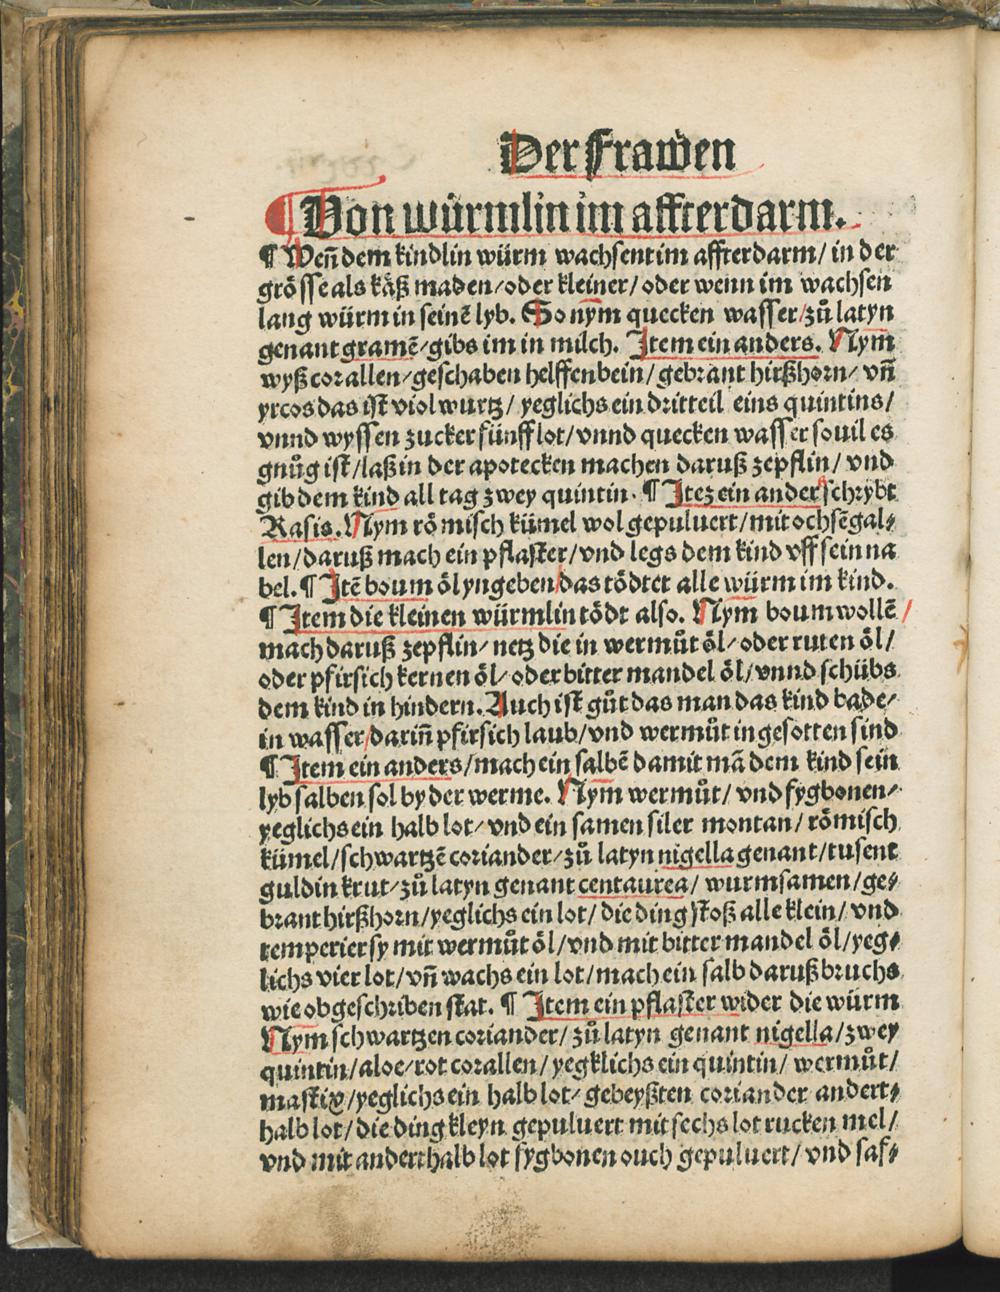 Der Frawen
¶ Von würmlin im affterdarm.
¶ Weñ dem kindlin würm wachsent im affterdarm/ in der
grösse als käß maden/oder kleiner/ oder wenn im wachsen
lang würm in seinẽ lyb. So nym quecken wasser/zů latyn
genant gramẽ/gibs im in milch. Item ein anders. Nym
wyß corallen/geschaben helffenbein/gebrant hirßhorn/ vñ
yrcos das ist violwurtz/ yeglichs ein dritteil eins quintins/
vnnd wyssen zucker fünff lot/vnnd quecken wasser souil es
gnůg ist/laß in der apotecken machen daruß zepflin/ vnd
gib dem kind all tag zwey quintin. ¶ Itez ein ander schrybt
Rasis. Nym römisch kümel wol gepuluert/mit ochsẽgal⸗
len/daruß mach ein pflaster/vnd legs dem kind vff sein na
bel. ¶ Itẽ boum öl yngeben/das tödtet alle würm im kind.
¶ Item die kleinen würmlin tödt also. Nym boumwollẽ/
mach daruß zepflin/ netz die in wermůt öl/ oder ruten öl/
oder pfirsich kernen öl/ oder bitter mandel öl/vnnd schübs
dem kind in hindern. Auch ist gůt das man das kind bade/
in wasser/dariñ pfirsich laub/vnd wermůt ingesotten sind
¶ Item ein anders/mach ein salbẽ damit mã dem kind sein
lyb salben sol by der werme. Nym wermůt/ vnd fygbonen/
yeglichs ein halb lot/ vnd ein samen siler montan/ römisch
kümel/schwartzẽ coriander/zů latyn nigella genant/tusent
guldin krut/zů latyn genant centaurea/ wurmsamen/ge⸗
brant hirßhorn/yeglichs ein lot/ die ding stoß alle klein/ vnd
temperier sy mit wermůt öl/vnd mit bitter mandel öl/yeg⸗
lichs vier lot/vñ wachs ein lot/mach ein salb daruß bruchs
wie obgeschriben stat. ¶ Item ein pflaster wider die würm
Nym schwartzen coriander/zů latyn genant nigella/zwey
quintin/aloe/rot corallen/ yegklichs ein quintin/ wermůt/
mastix/yeglichs ein halb lot/ gebeyßten coriander andert⸗
halb lot/die ding kleyn gepuluert mit sechs lot rucken mel/
vnd mit anderthalb lot fygbonen ouch gepuluert/ vnd saf⸗